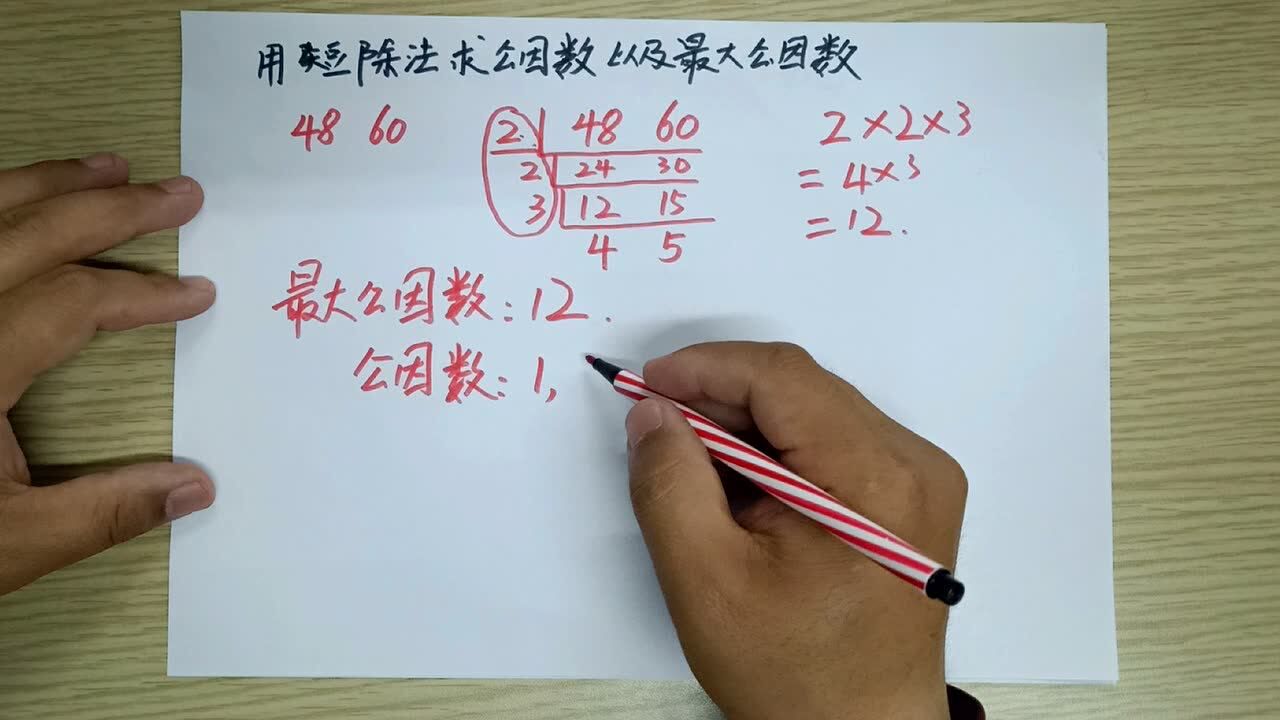 用短除法求公因数以及最大公因数
48 60
2 48 60
2 24 30
3 12 15
4 5
2×2×3
=4×3
=12.
最大公因数:12.
公因数:1,